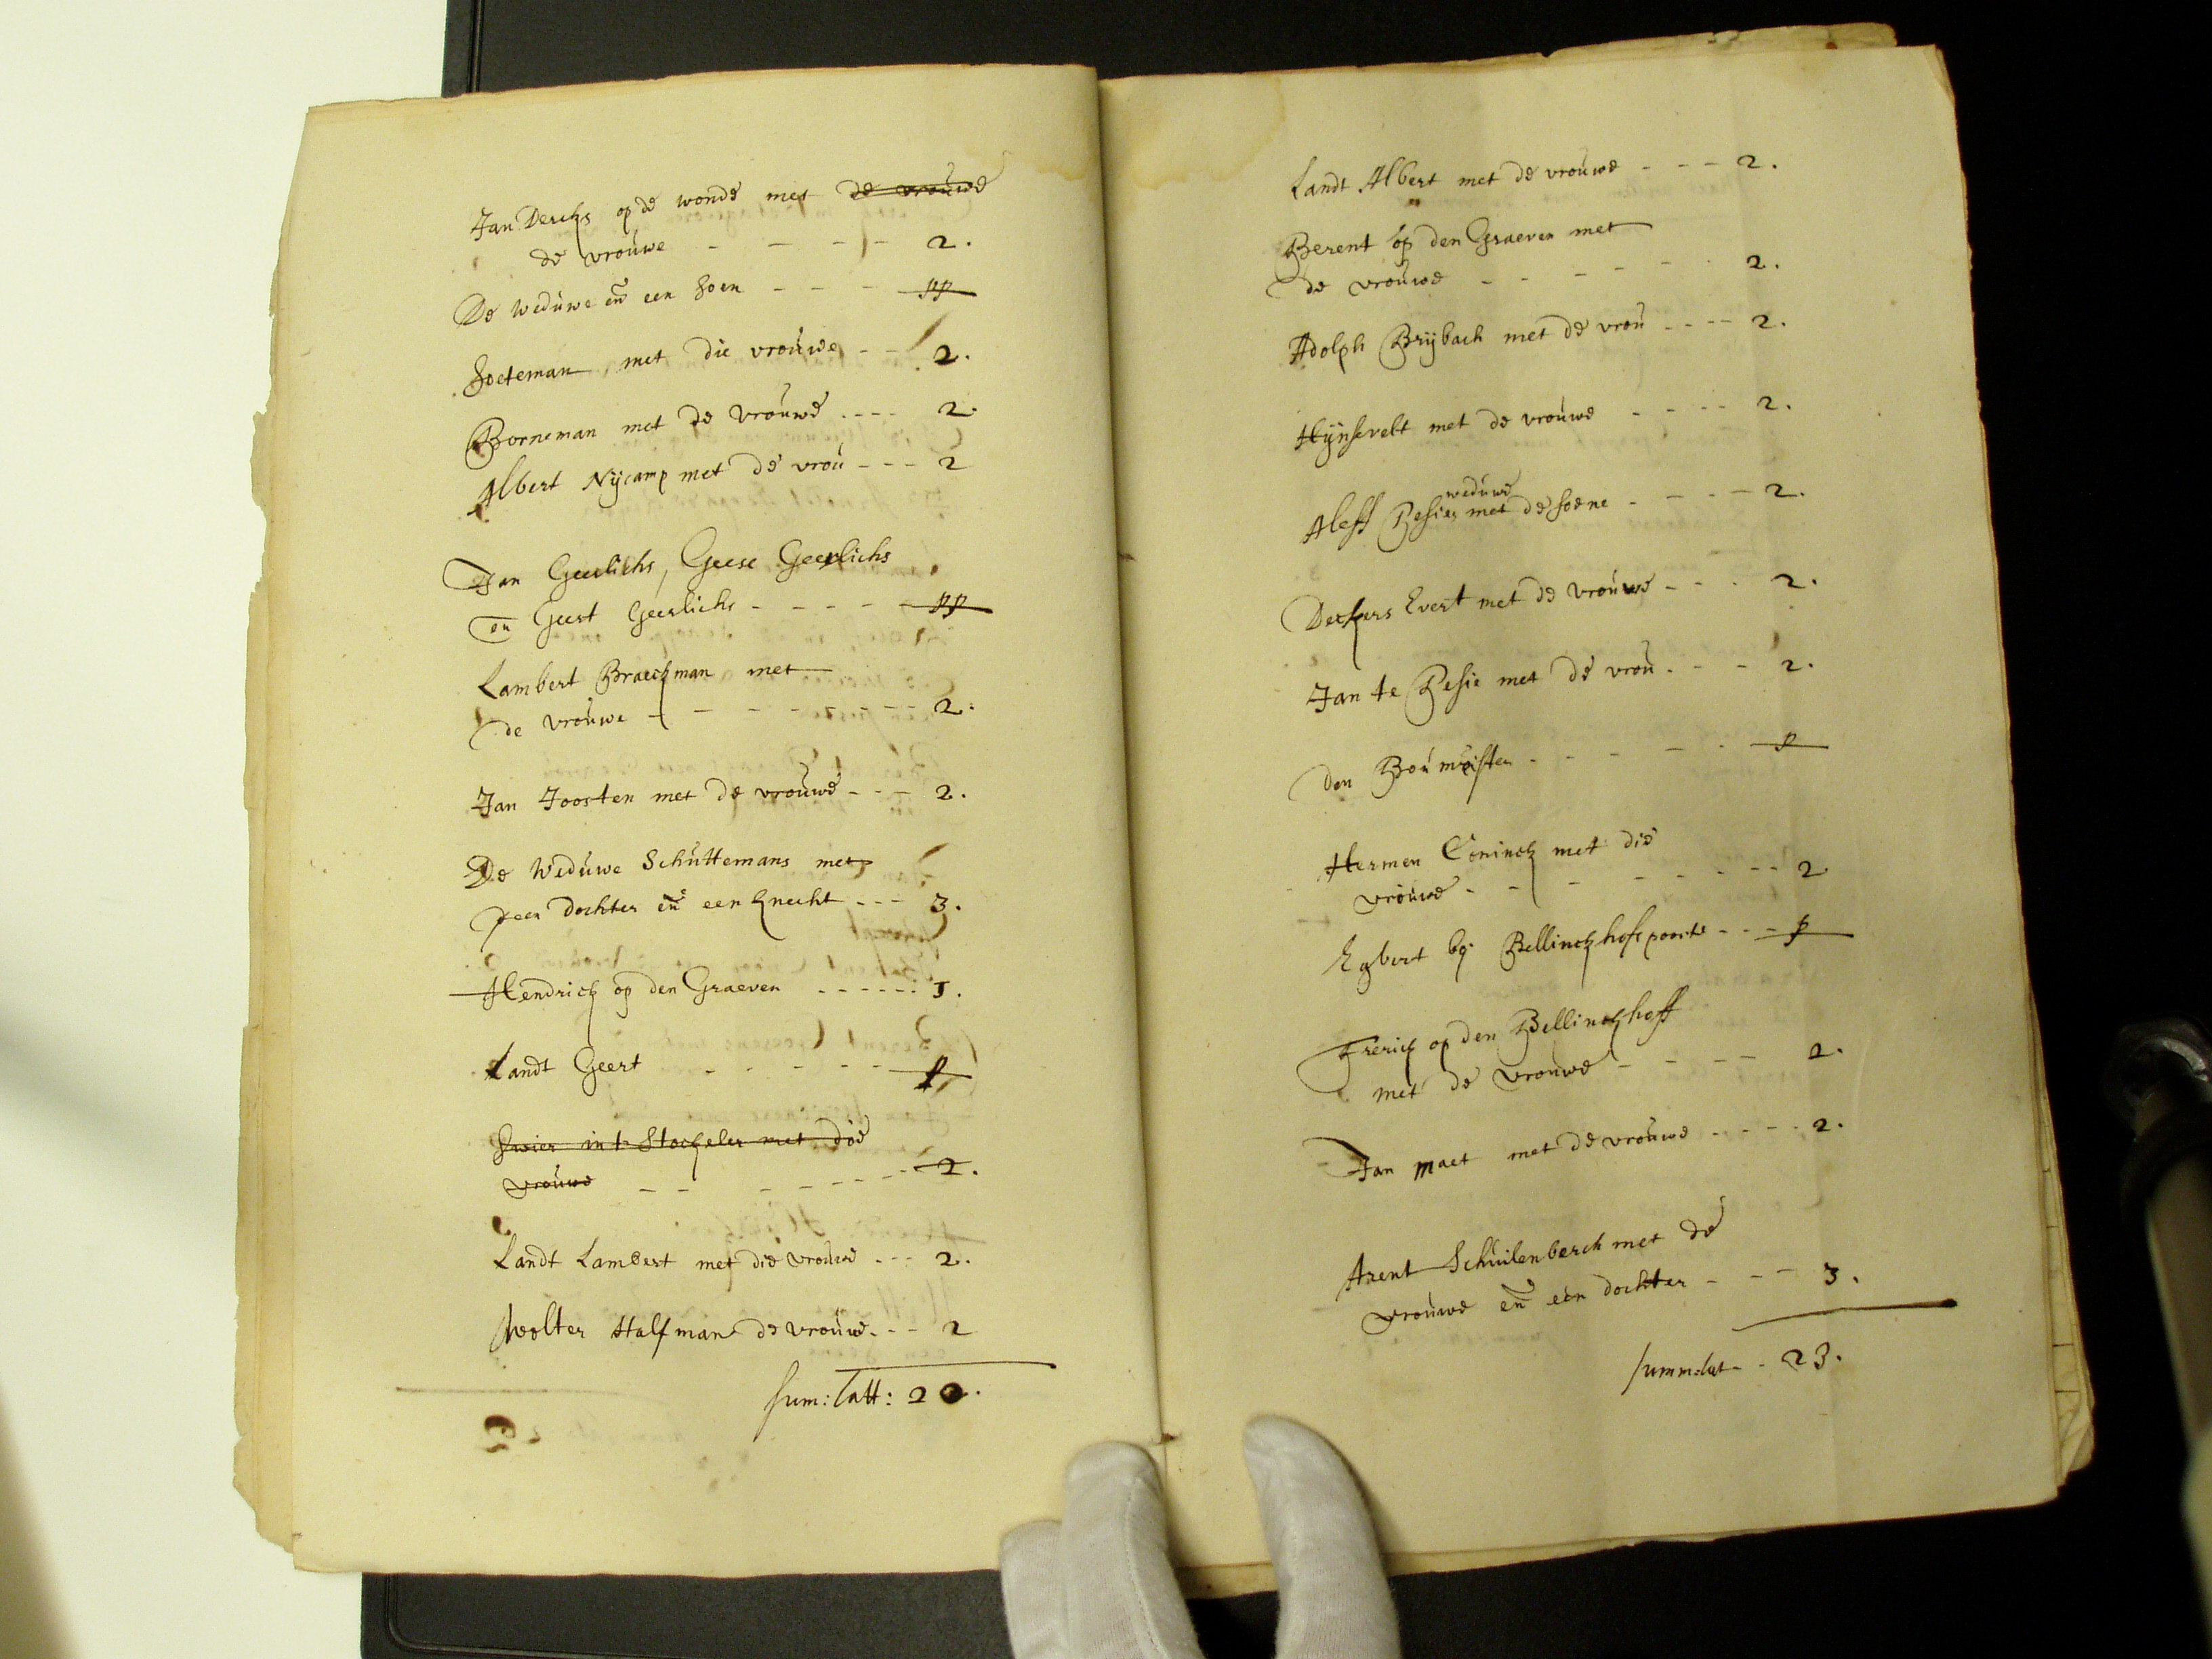 Jan Dercks op de wonde met de vrouwe
de vrouwe - - - - 2.
De weduwe en een soen - - - pp
Soeteman met die vrouwe - - 2.
Borneman met de vrouwe .... 2.
Albert Nijcamp met de vrou - - - 2
Jan Geerlichs, Geese Geerlichs
en Geert Geerlichs - - - - - pp
Lambert Braeckman met
de vrouwe - - - - - - - 2.
Jan Joosten met de vrouwe - - - 2.
De Weduwe Schuttemans met
een dochter en een knecht - - - 3.
Hendrick op den Graeven ...... 1.
Landt Geert - - - - - p
Swier int Stockeler met die
vrouwe - - - - - - - 2.
Landt Lambert met die vrouwe - - - 2.
Wolter Halfman de vrouwe - - - 2
sum: latt: 20.
Landt Albert met de vrouwe - - - 2.
Berent op den Graeven met
de vrouwe - - - - - - 2.
Adolph Brijbach met de vrou - - - - 2.
Hijnsevelt met de vrouwe - - - - 2.
weduwe
Aleff Besies met de soene - - - - 2.
Deckers Evert met de vrouwe - - - 2.
Jan te Besie met de vrou - - - 2.
Den Boumeister - - - - - p
Hermen Coninck met die
vrouwe - - - - - - - - 2
Egbert bij Bellinckhofs poorte - - - p
Frerick op den Bellinckhoff
met de vrouwe - - - - 2.
Jan Maet met de vrouwe - - - - 2.
Arent Schuilenberch met de
vrouwe en een dochter - - - 3.
summ: lat - - 23.